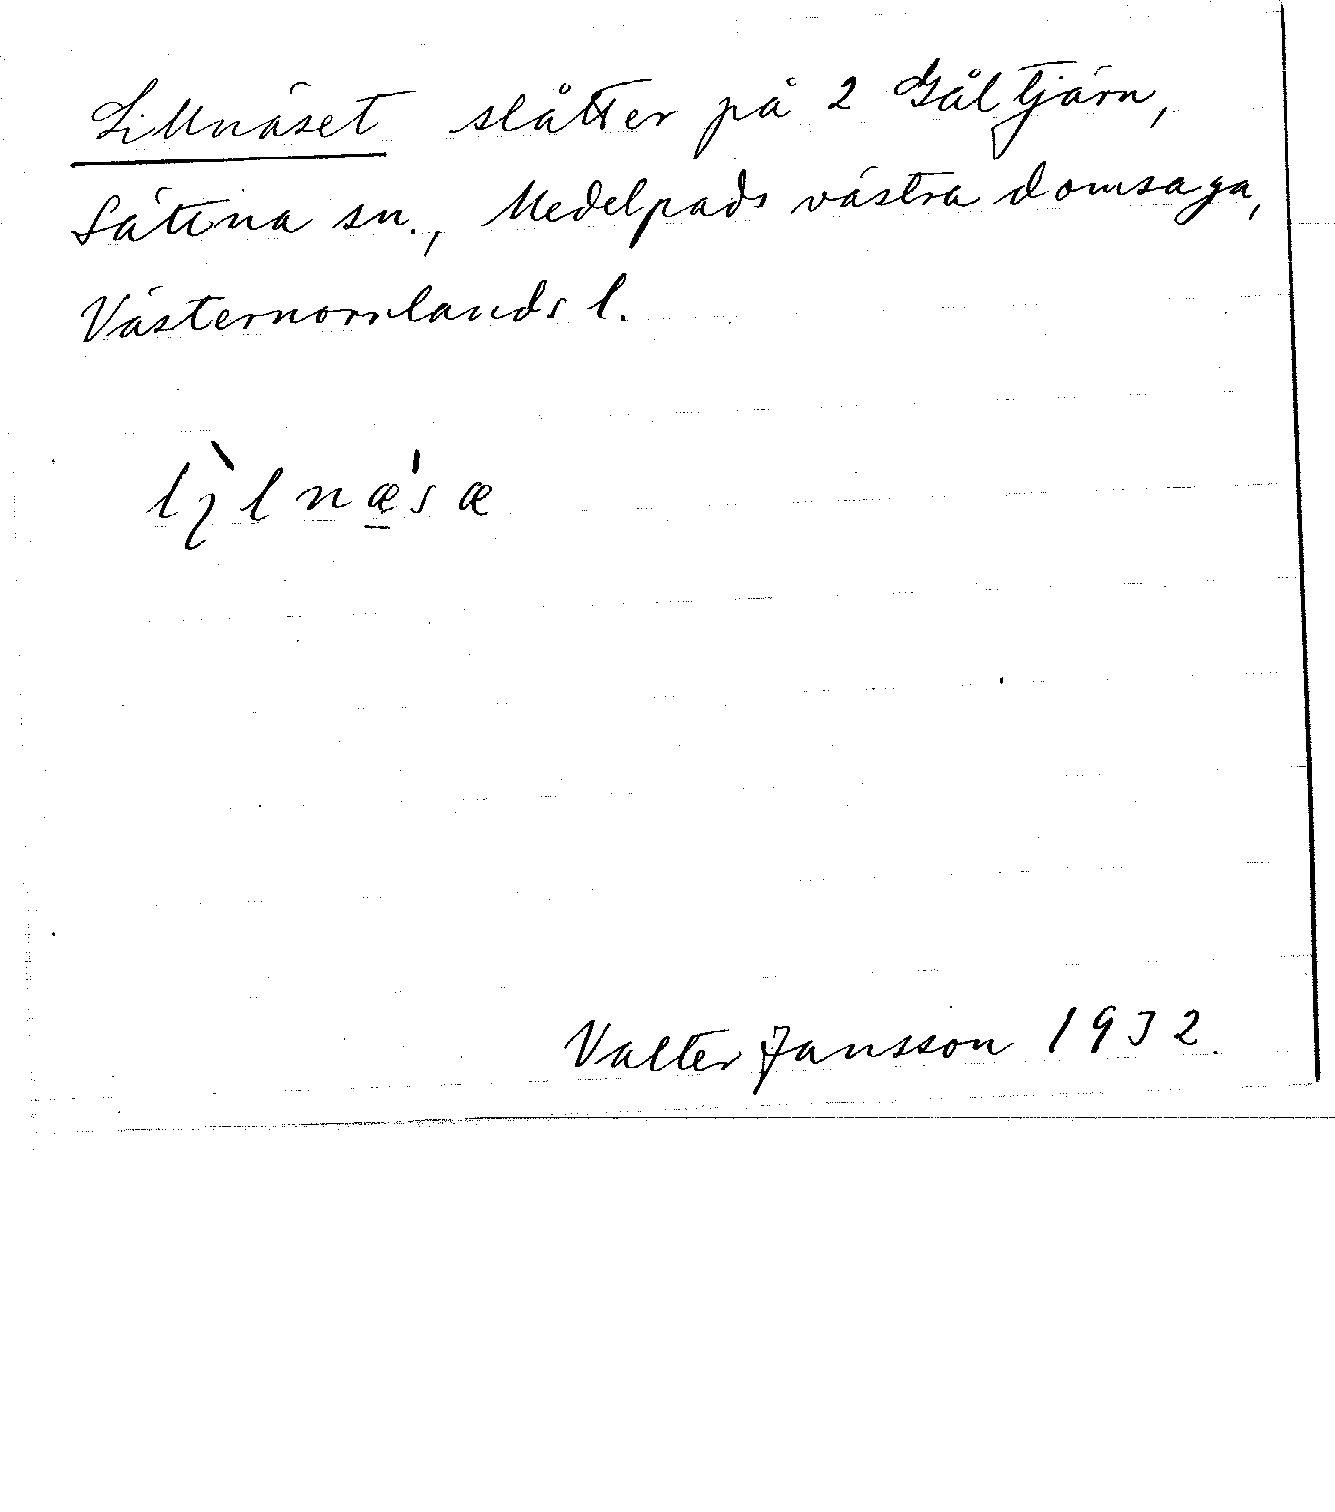 Lillnäset slåtter på 2 Gåltjärn,
Sättna sn., Medelpads västra domsaga,
Västernorrlands l.
Valter Jansson 1932.